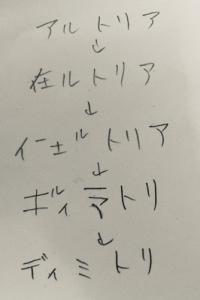 アルトリア
↓
在ルトリア
↓
イー土ルトリア
↓
ギィアトリ
↓
ディミトリ